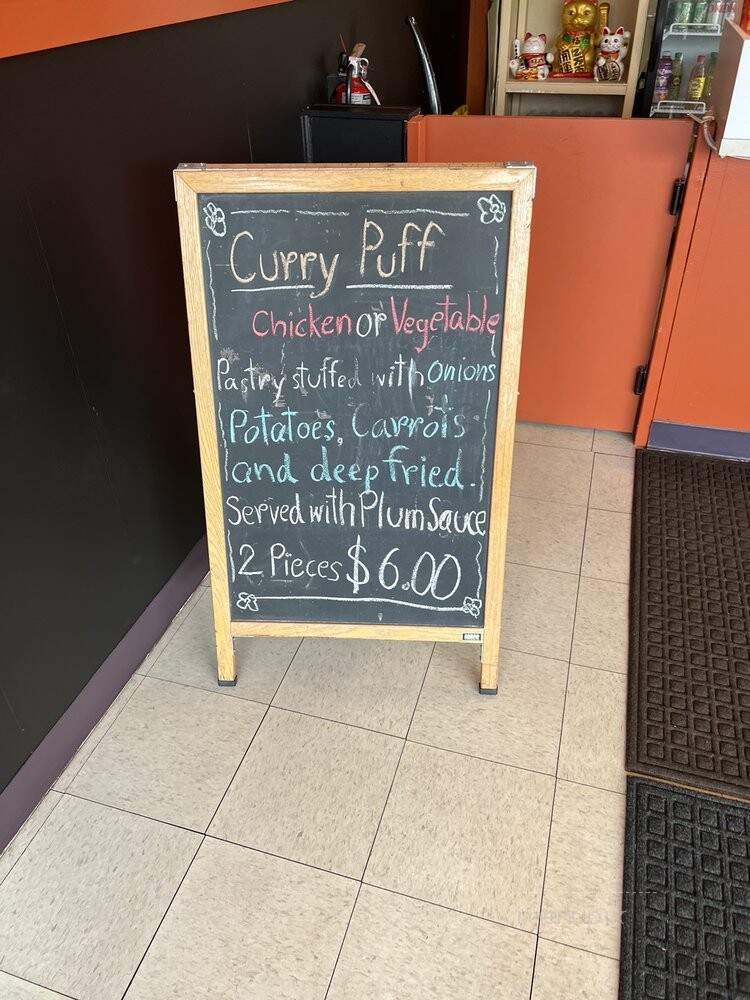 Curry Puff
Chicken or Vegetable
Pastry stuffed with Onions
Potatoes, Carrots
and deep fried.
Served with Plum Sauce
2 Pieces $6.00